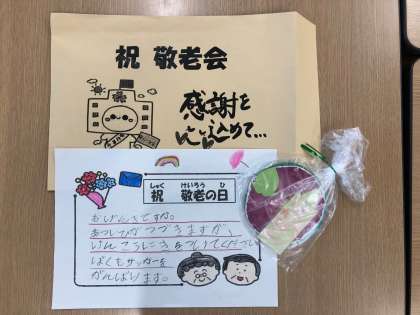 祝 敬老会
感謝を
心込めて…
しゅく けいろう ひ
祝 敬老の日
おげんきですか。
あついひがつづきますが、
けんこうにきをつけてください。
ぼくもサッカーを
がんばります。